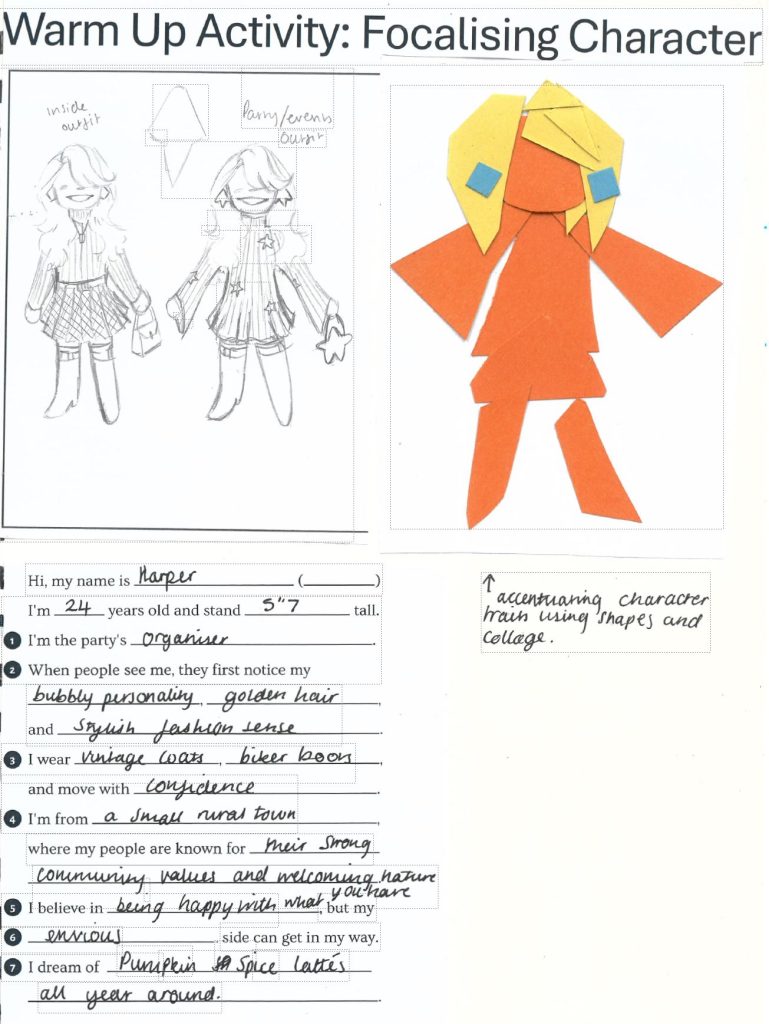 Warm Up Activity: Focalising Character
inside
outfit
Party/events
outfit
Hi, my name is Harper ( )
I'm 24 years old and stand 5"7 tall.
1 I'm the party's organiser.
2 When people see me, they first notice my
bubbly personality, golden hair,
and stylish fashion sense.
3 I wear vintage coats, biker boots,
and move with confidence.
4 I'm from a small rural town
where my people are known for their strong
community values and welcoming nature
5 I believe in being happy with what you have, but my
6 envious side can get in my way.
7 I dream of Pumpkin Spice lattés
all year around.
↑ accentuating character
traits using shapes and
collage.